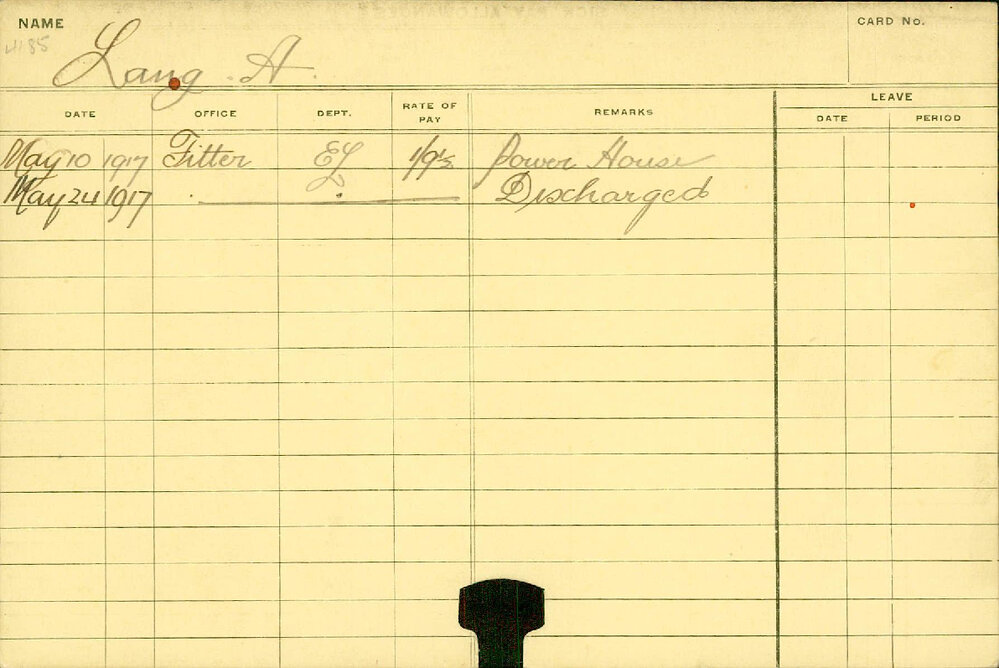 NAME
CARD No.
4185
Lang. A.
DATE OFFICE DEPT. RATE OF PAY REMARKS LEAVE
DATE PERIOD
May 10 1917 Fitter EL 1/9½ Power House
May 24 1917 Discharged